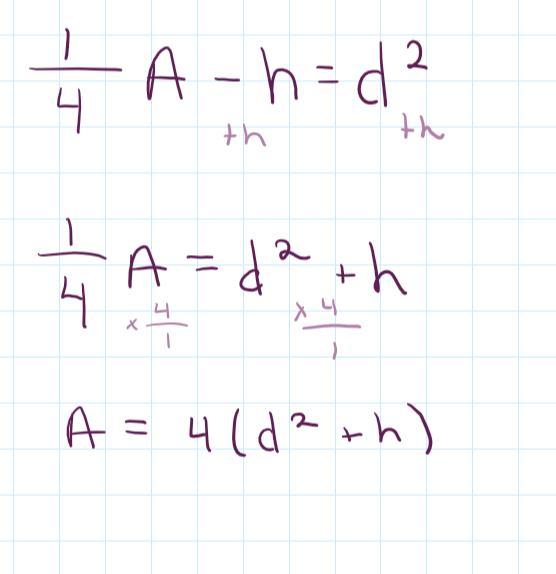 1/4 A - h = d²
+h +h
1/4 A = d² + h
× 4/1 × 4/1
A = 4(d² + h)